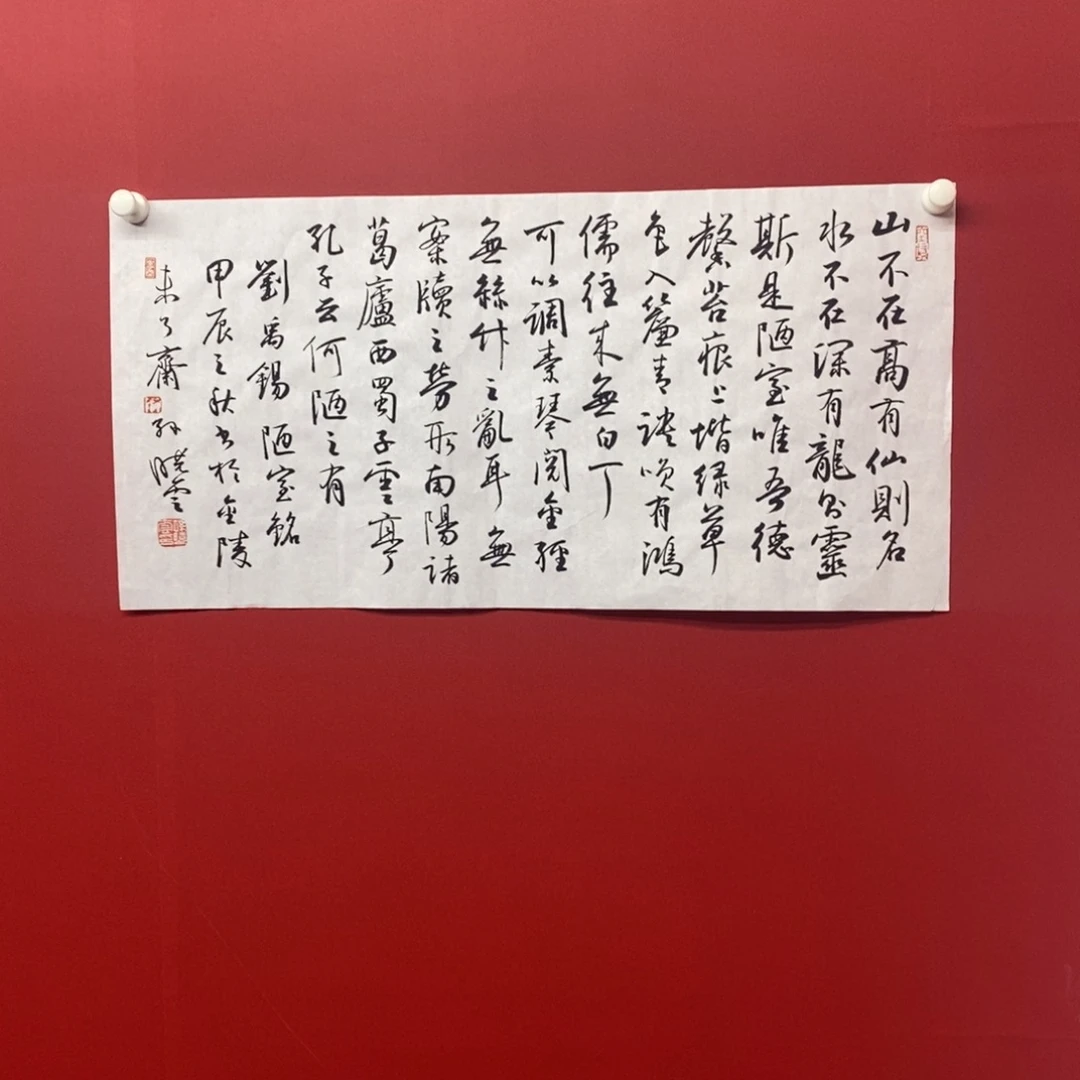 山不在高有仙則名
水不在深有龍則靈
斯是陋室唯吾德
馨苔痕上堦绿草
色入簾青談笑有鴻
儒往来無白丁
可以調素琴閱金經
無絲竹之亂耳無
案牘之勞形南陽諸
葛廬西蜀子雲亭
孔子云何陋之有
劉禹錫陋室銘
甲辰之秋書於金陵
未了齋孫曉雲